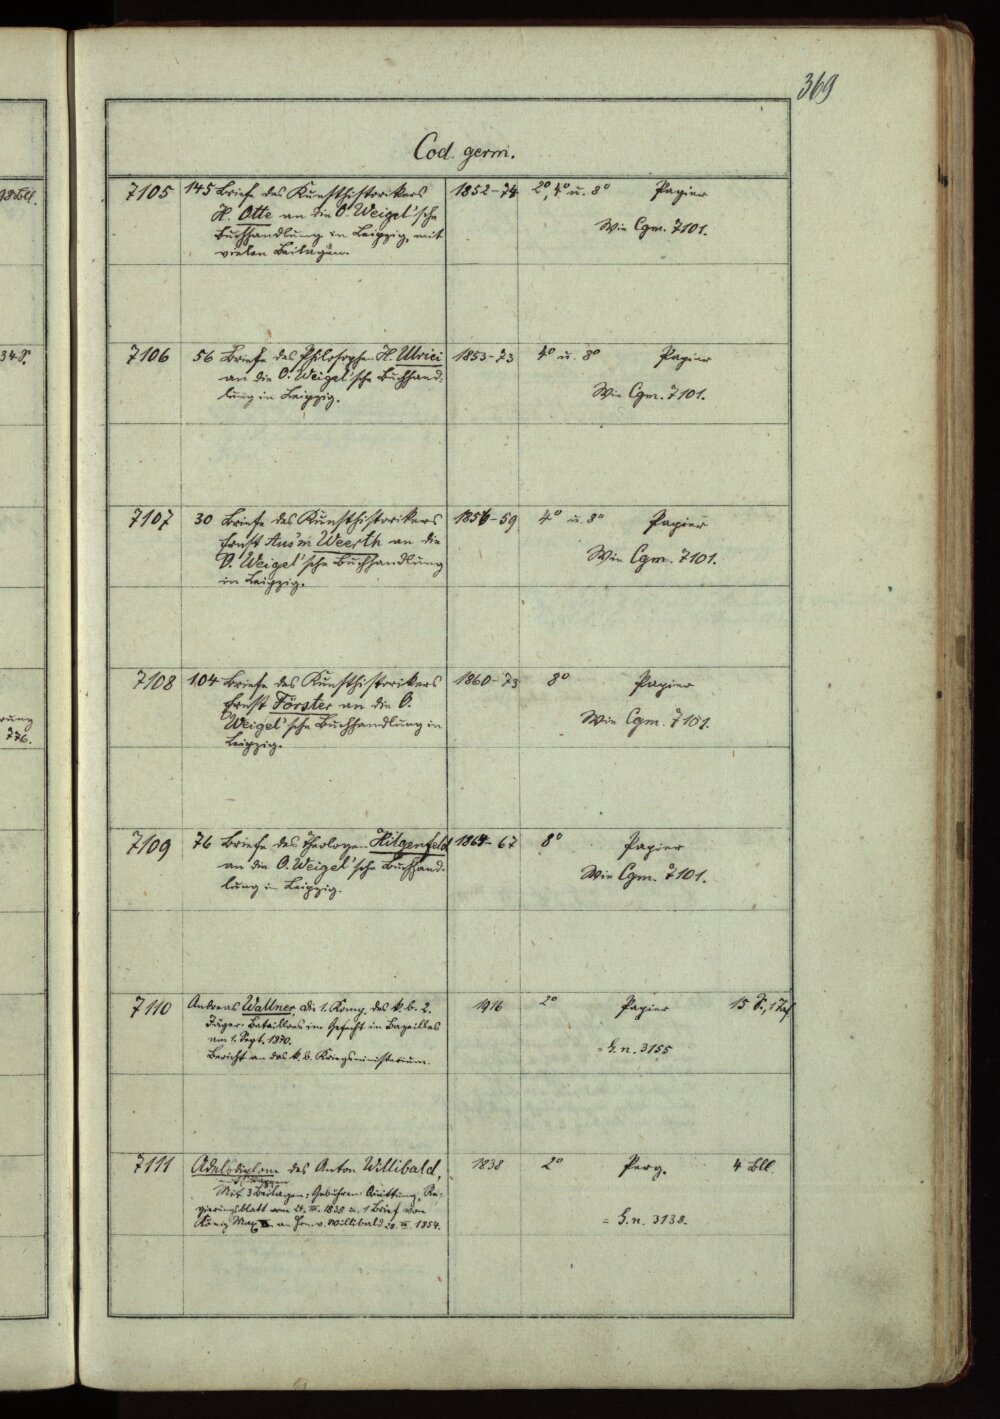 369
98 Bll.
34 S.
776.
Cod. germ.
7105 145 Briefe des Kunsthistorikers 1852-74 2°, 4° u. 8° Papier
H. Otte an die O. Weigel'sche Wie Cgm. 7101.
Buchhandlung in Leipzig, mit
vielen Beilagen.
7106 56 Briefe des Philosophen H. Ulrici 1853-73 4° u. 8° Papier
an die O. Weigel'sche Buchhand- Wie Cgm. 7101.
lung in Leipzig.
7107 30 Briefe des Kunsthistorikers 1856-59 4° u. 8° Papier
Ernst Aus'm Weerth an die
O. Weigel'sche Buchhandlung Wie Cgm. 7101.
in Leipzig.
7108 104 Briefe des Kunsthistorikers 1860-73 8° Papier
Ernst Förster an die O.
Weigel'sche Buchhandlung in Wie Cgm. 7101.
Leipzig.
7109 76 Briefe des Theologen Hilgenfeld 1864-67 8° Papier
an die O. Weigel'sche Buchhand- Wie Cgm. 7101.
lung in Leipzig.
7110 Andreas Wallner, Die 1. Komp. des k. b. 2. 1916 2° Papier 15 S., 1 Taf
Jäger-Bataillons im Gefecht in Bazeilles
am 1. Sept. 1870. = G. n. 3155
Bericht an das k. b. Kriegsministerium.
7111 Adelsdiplom des Anton Willibald, 1838 2° Perg. 4 Bll.
mit Wappen
Mit 3 Beilagen: Gebühren Quittung, Re-
gierungsblatt vom 24. III. 1838 u. 1 Brief von = G. n. 3138.
König Max II. an Hrn. v. Willibald 28. III. 1854.